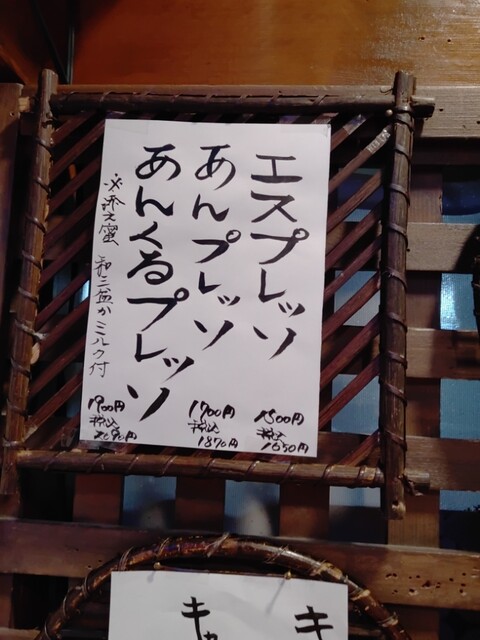 エスプレッソ
1500円
税込
1650円
あんプレッソ
1700円
税込
1870円
あんくるプレッソ
1900円
税込
2090円
※添え蜜 和三盆かミルク付
キ
キャ